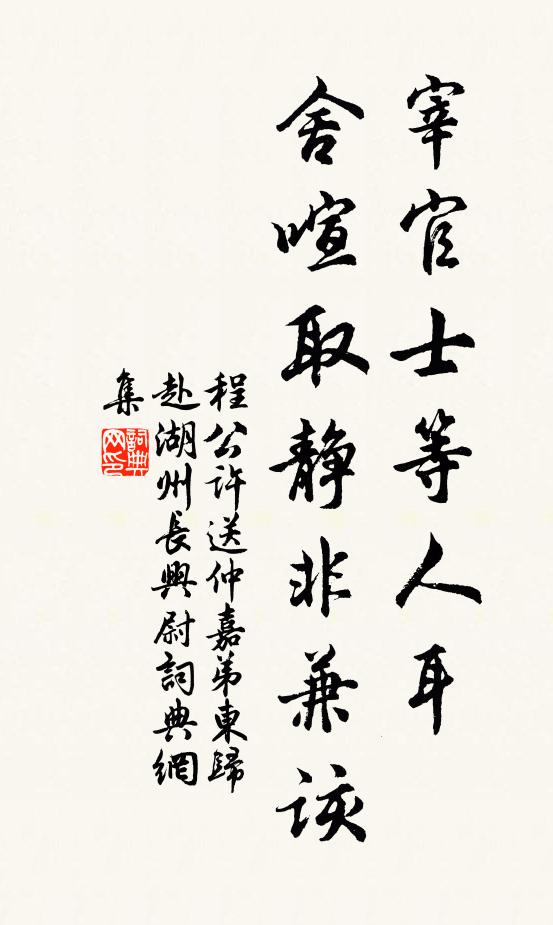 宰官士等人耳
舍喧取靜非兼該
程公許送仲嘉弟東歸
赴湖州長興尉詞典網
集
詞典
网印